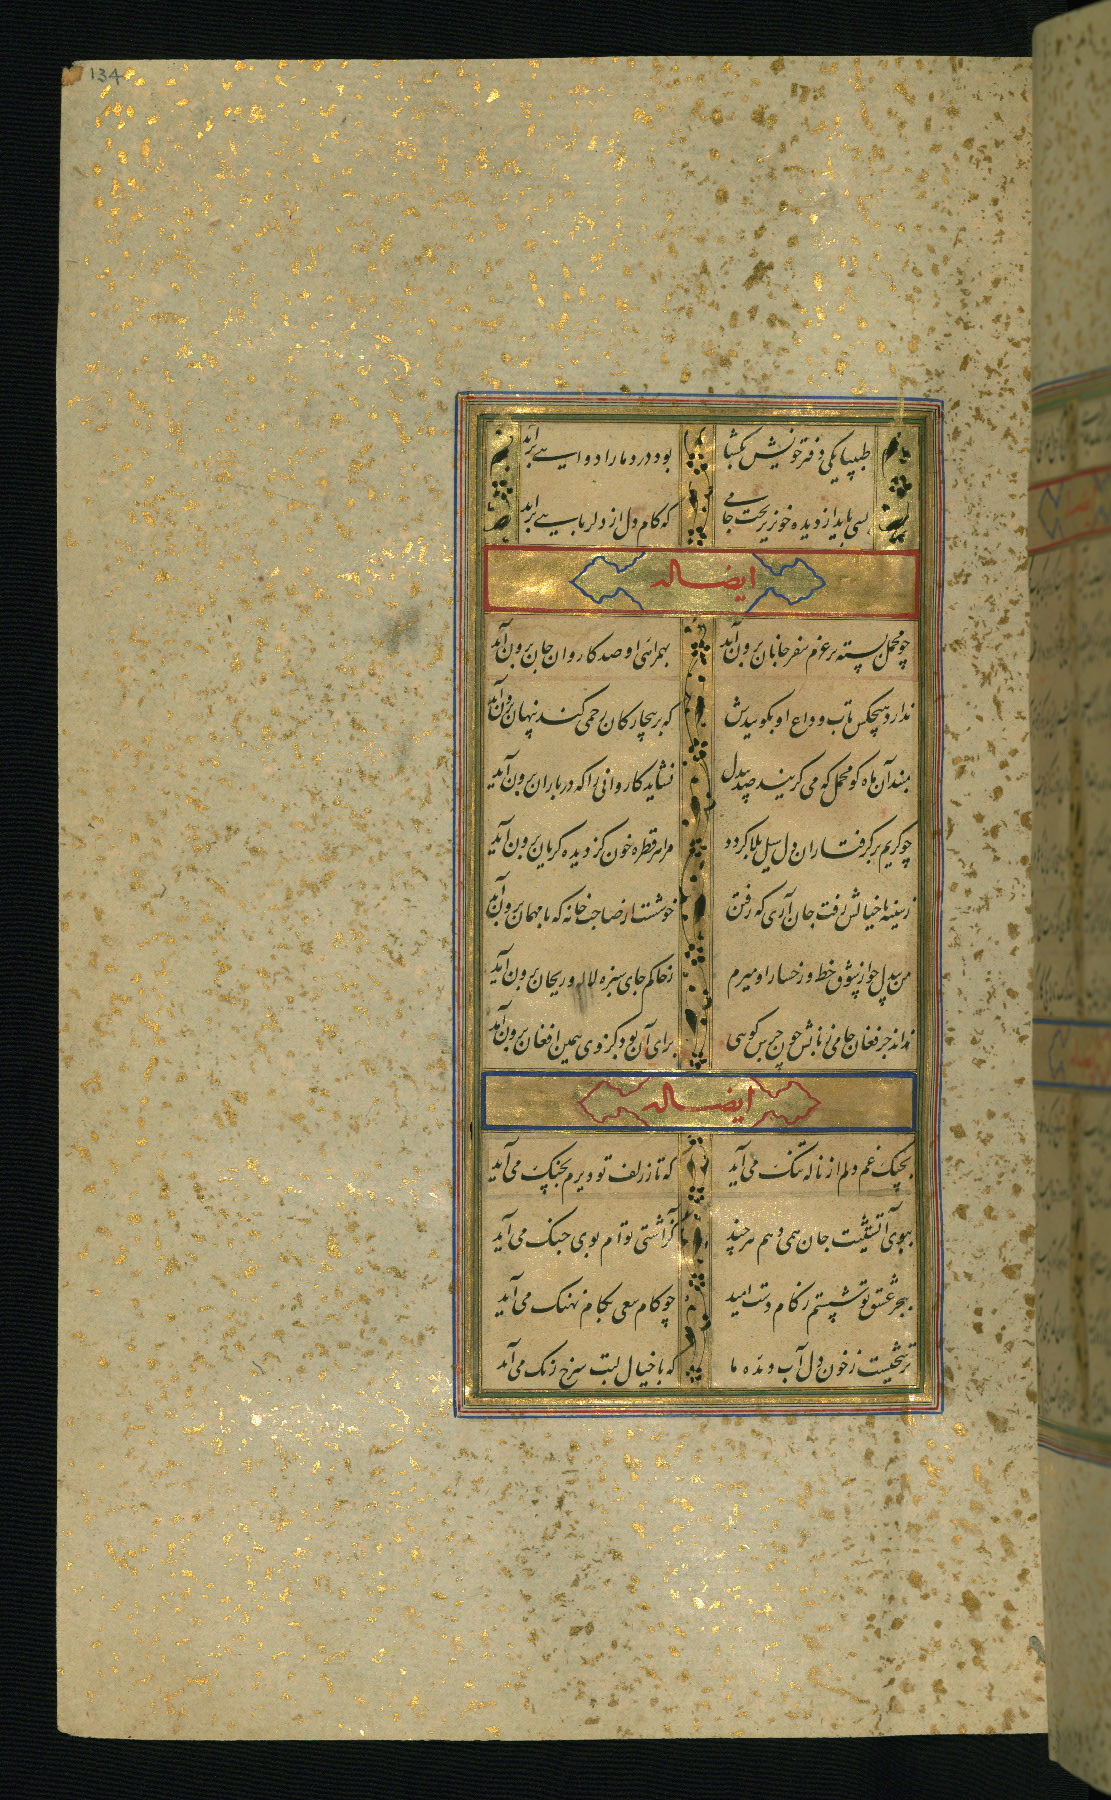 134
طبیبا یکی دفتر خویش بکشا بود درد ما را دوایی برآید
بسی باید از دیده خون ریخت جامی که کام دل از دلربایی برآید
ایضا له
چو محمل بسته بر عزم سفر جانان برون آید بهمراهی او صد کاروان جان برون آید
ندارد هیچکس تاب وداع او بکوییدش که بر بیچارکان رحمی کند پنهان برون آید
مبند آن ماه کو محمل که می کریند صد بیدل نشاید کاروانی را که در باران برون آید
چو کریم بر کرفتاران دل سیل بلا کردد مرا هر قطره خون کز دیده کریان برون آید
ز سینه با خیالش رفت جان آری که رفتن خوشست از صاحب خانه که با مهمان برون آید
من بیدل چو از شوق خط و رخسار او میرم ز خاکم جای سبزه لاله و ریحان برون آید
نداند جز فغان جامی زبانش چون جرس کویی برای آن بود کز وی همین افغان برون آید
ایضا له
بچنک غم دلم از ناله تنک می آید که تا ز زلف تو دیرم بچنک می آید
ببوی آشتیت جان همی دهم هر چند کز آشتی توام بوی جنک می آید
ببحر عشق تو شستم ز کام دست امید چو کام سعی بکام نهنک می آید
ز خون دل آب دیده ما که با خیال لبت سرخ رنک می آید